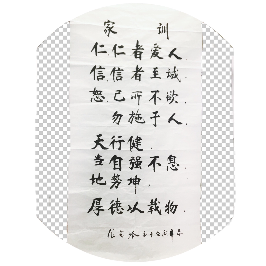 家训
仁.仁者爱人.
信.信者至诚.
恕.己所不欲.
勿施于人.
天行健.
当自强不息.
地势坤.
厚德以载物.